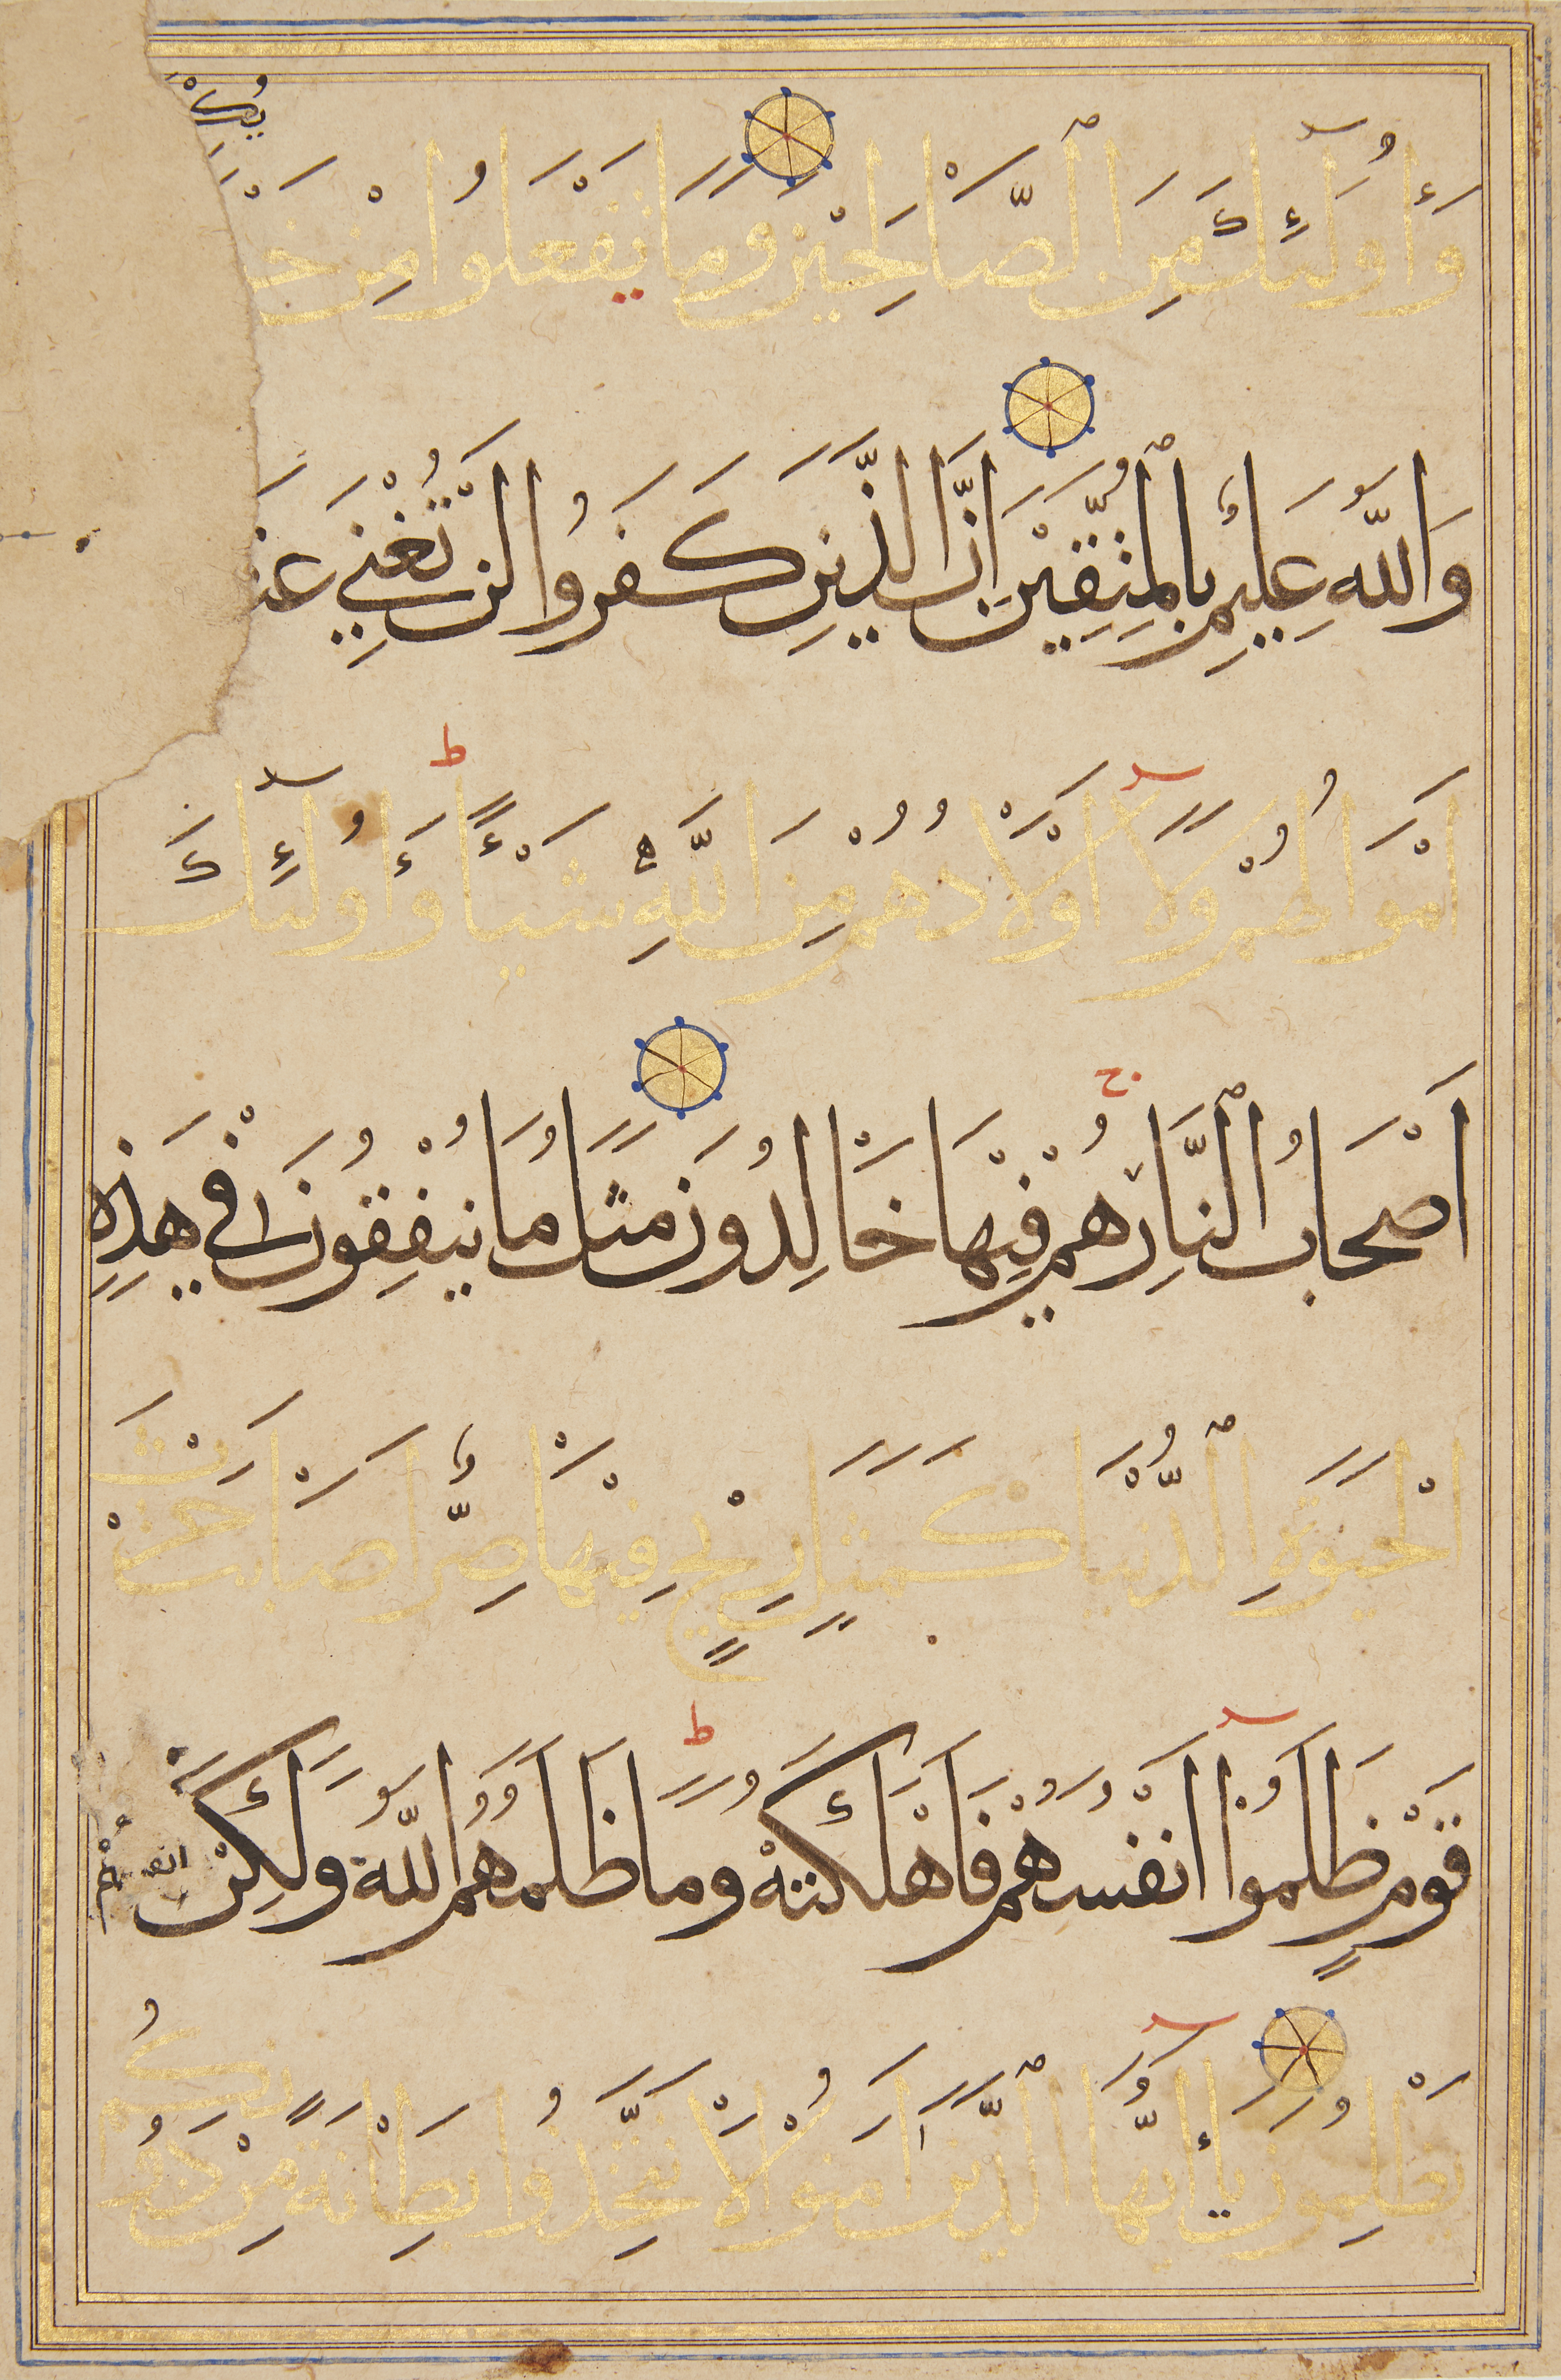 وَأُولَٰئِكَ مِنَ الصَّالِحِينَ وَمَا يَفْعَلُوا مِنْ
وَاللَّهُ عَلِيمٌ بِالْمُتَّقِينَ إِنَّ الَّذِينَ كَفَرُوا لَنْ تُغْنِيَ
أَمْوَالُهُمْ وَلَا أَوْلَادُهُمْ مِنَ اللَّهِ شَيْئًا وَأُولَٰئِكَ
أَصْحَابُ النَّارِ هُمْ فِيهَا خَالِدُونَ مَثَلُ مَا يُنْفِقُونَ فِي هَذِهِ
الْحَيَوةِ الدُّنْيَا كَمَثَلِ رِيحٍ فِيهَا صِرٌّ أَصَابَتْ حَرْثَ
قَوْمٍ ظَلَمُوا أَنْفُسَهُمْ فَأَهْلَكَتْهُ وَمَا ظَلَمَهُمُ اللَّهُ وَلَكِنْ
يَظْلِمُونَ يَا أَيُّهَا الَّذِينَ آمَنُوا لَا تَتَّخِذُوا بِطَانَةً مِنْ دُونِكُمْ